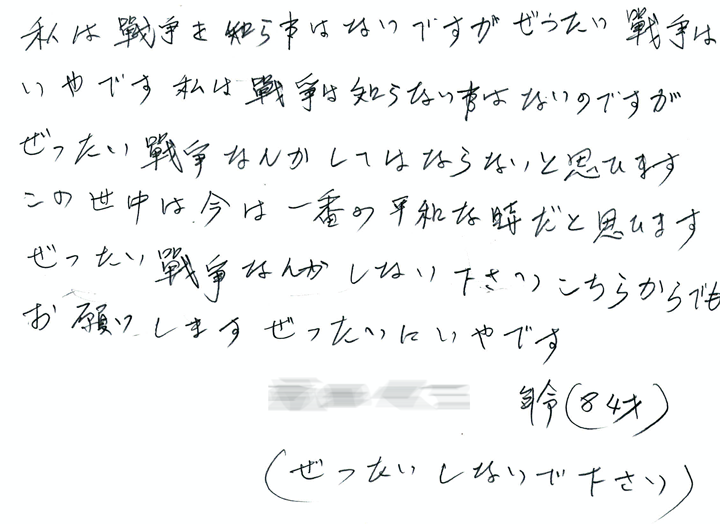 私は戰爭を知ら事はないですがぜったい戰爭は
いやです私は戰爭は知らない事はないのですが
ぜったい戰爭なんかしてはならないと思ひます
この世中は今は一番の平和な時だと思ひます
ぜったい戰爭なんかしない下さいこちらからでも
お願いしますぜったいにいやです
年令(84才)
(ぜったいしないで下さい)